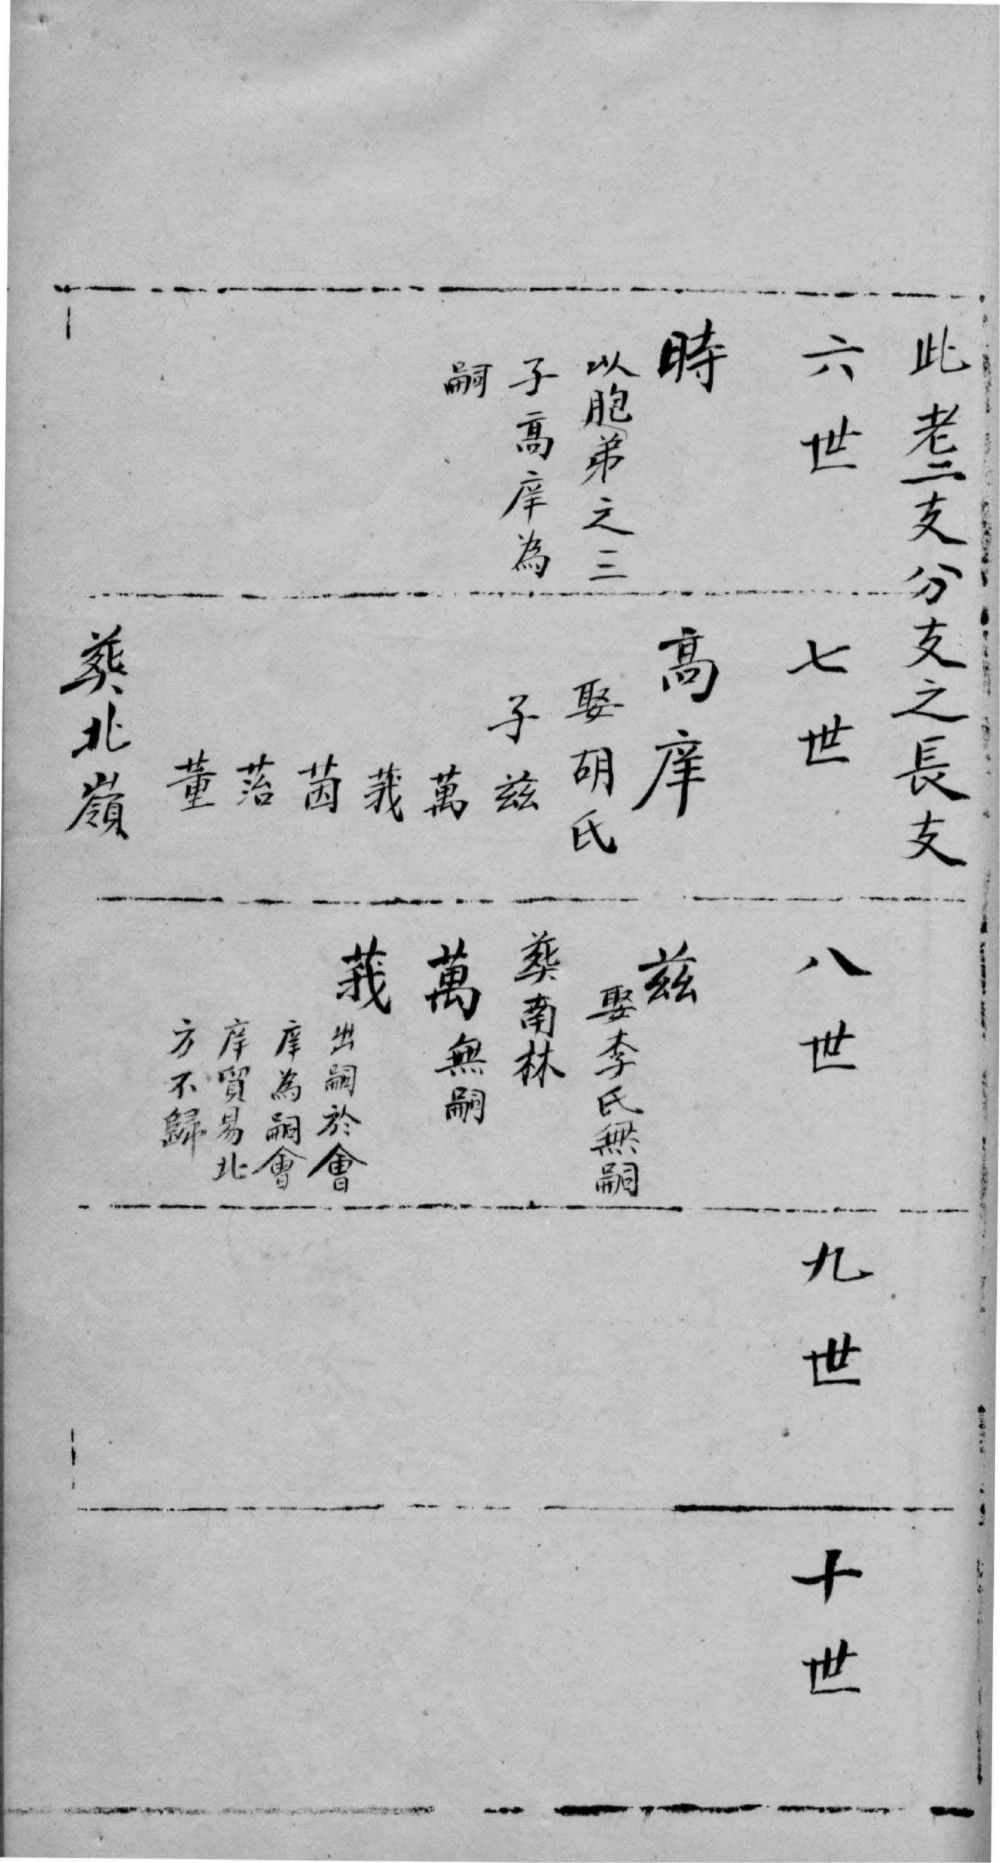 此老二支分支之長支
六世
時
以胞弟之三
子高庠為
嗣
七世
高庠
娶胡氏
子兹
萬
莪
茵
萡
董
葬北嶺
八世
兹
娶李氏無嗣
葬南林
萬無嗣
莪
出嗣於會
庠為嗣會
庠貿易北
方不歸
九世
十世